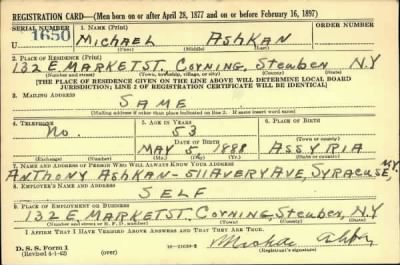 REGISTRATION CARD—(Men born on or after April 28, 1877 and on or before February 16, 1897)
SERIAL NUMBER 1. NAME (Print) ORDER NUMBER
U 1650 MICHAEL ASHKAN
(First) (Middle) (Last)
2. PLACE OF RESIDENCE (Print)
132 E MARKET ST. CORNING, STEUBEN N.Y
(Number and street) (Town, township, village, or city) (County) (State)
[THE PLACE OF RESIDENCE GIVEN ON THE LINE ABOVE WILL DETERMINE LOCAL BOARD
JURISDICTION; LINE 2 OF REGISTRATION CERTIFICATE WILL BE IDENTICAL]
3. MAILING ADDRESS
SAME
[Mailing address if other than place indicated on line 2. If same insert word same]
4. TELEPHONE 5. AGE IN YEARS 6. PLACE OF BIRTH
No. 53
DATE OF BIRTH (Town or county)
MAY 5, 1888 ASSYRIA
(Exchange) (Number) (Mo.) (Day) (Yr.) (State or country)
7. NAME AND ADDRESS OF PERSON WHO WILL ALWAYS KNOW YOUR ADDRESS
ANTHONY ASHKAN - 511 AVERY AVE, SYRACUSE, N.Y.
8. EMPLOYER'S NAME AND ADDRESS
SELF
9. PLACE OF EMPLOYMENT OR BUSINESS
132 E MARKET ST. CORNING, STEUBEN, N.Y
(Number and street or R. F. D. number) (Town) (County) (State)
I AFFIRM THAT I HAVE VERIFIED ABOVE ANSWERS AND THAT THEY ARE TRUE.
D. S. S. Form 1
(Revised 4-1-42) (over) (Registrant's signature)